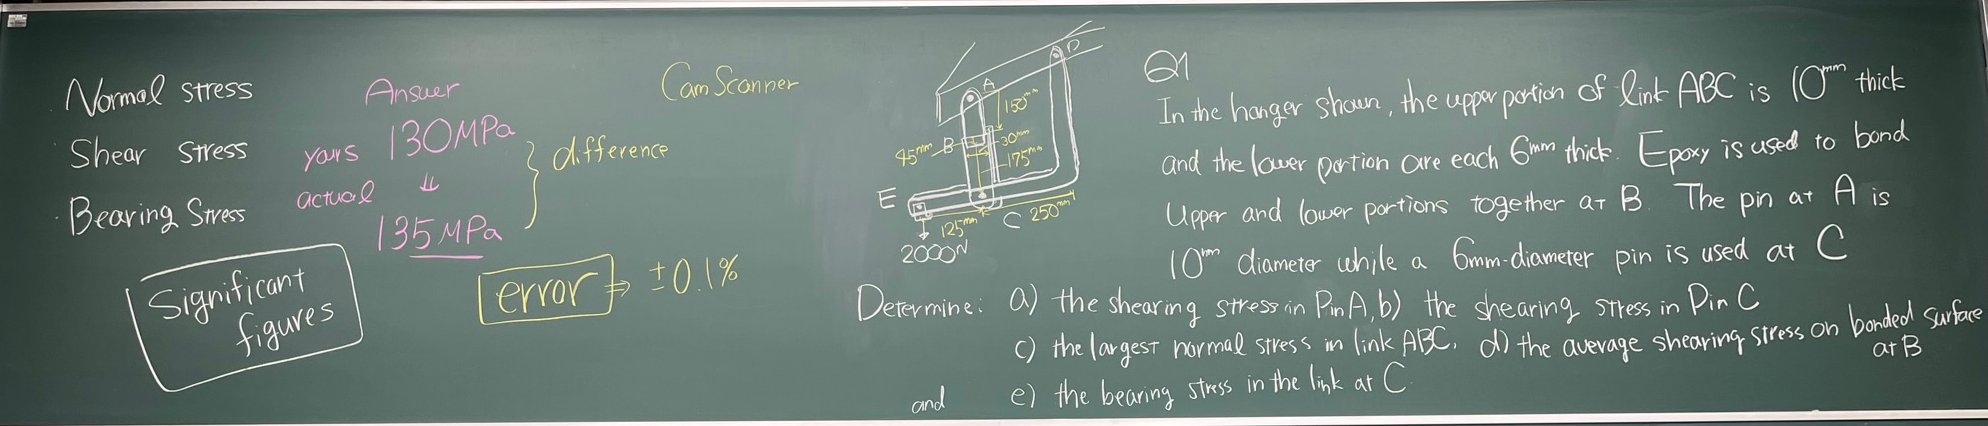 Normal stress
Shear stress
Bearing Stress
Significant
figures
Answer
yours 130MPa
actual
135MPa
difference
error ⇒ ±0.1%
CamScanner
D
A
150mm
45mm B 30mm
175mm
E
C 250mm
125mm
2000N
Q1
In the hanger shown, the upper portion of link ABC is 10mm thick
and the lower portion are each 6mm thick. Epoxy is used to bond
upper and lower portions together at B. The pin at A is
10mm diameter while a 6mm-diameter pin is used at C
Determine: a) the shearing stress in Pin A, b) the shearing stress in Pin C
c) the largest normal stress in link ABC, d) the average shearing stress on bonded surface
at B
and e) the bearing stress in the link at C.